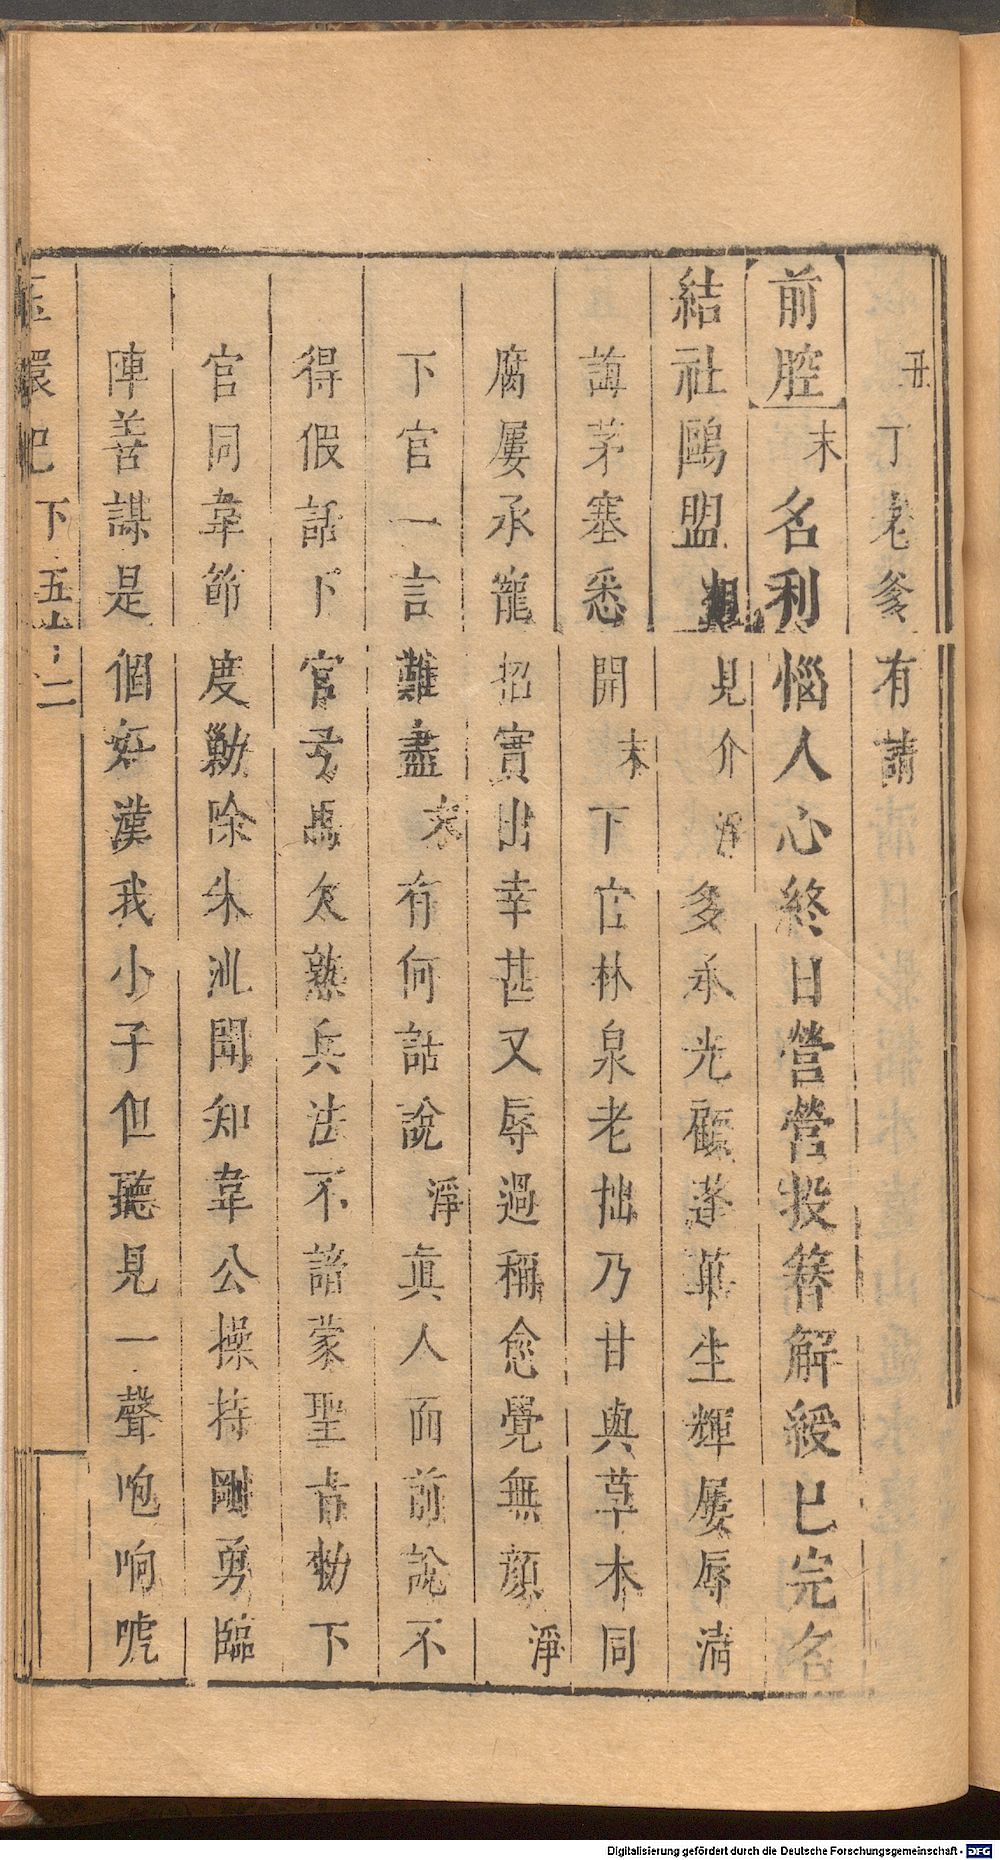 丑丁老爹有請
前腔末名利惱人心終日營營投簪解綬已完名
結社鷗盟相見介淨多承光顧蓬蓽生輝屢辱清
誨茅塞悉開末下官林泉老拙乃甘與草木同
腐屢承寵招實出幸甚又辱過稱愈覺無顏淨
下官一言難盡末有何話說淨眞人面前說不
得假話下官弓馬欠熟兵法不諳蒙聖旨勑下
官同韋節度勦除朱泚聞知韋公操持剛勇臨
陣善謀是個好漢我小子但聽見一聲咆响唬
玉環记 下 五十二
Digitalisierung gefördert durch die Deutsche Forschungsgemeinschaft - DFG